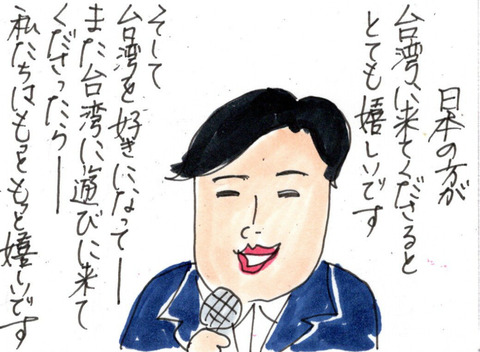 日本の方が
台湾に来てくださると
とても嬉しいです
そして
台湾を好きになってー
また台湾に遊びに来て
くださったらー
私たちはもっともっと嬉しいです